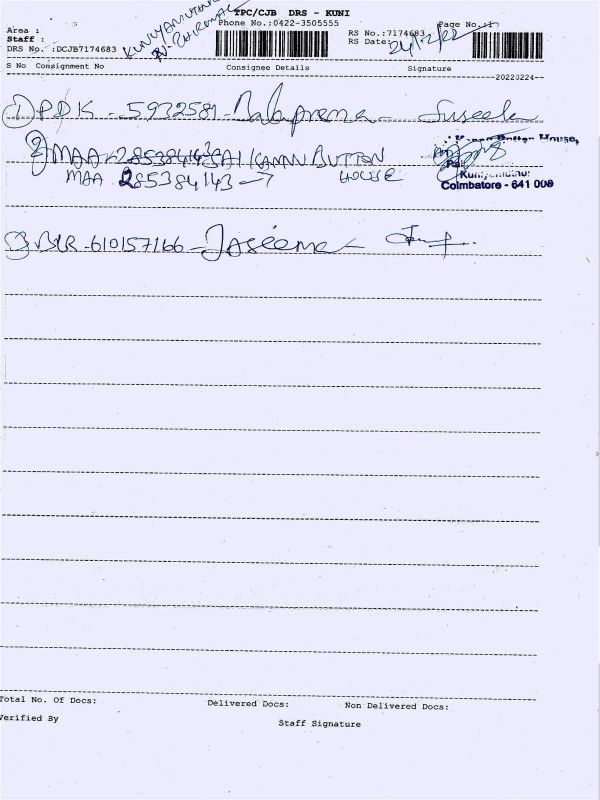 TPC/CJB DRS - KUNI
Phone No.:0422-3505555
Page No.:1
Area :
KUNIYAMUTHUR
Staff :
RS No.:7174683
RS Date:
24/2/22
DRS No. :DCJB7174683
S No Consignment No Consignee Details Signature
20220224
① PDK - 5932581 - Suseela
② MAA - SAI KANNN BUTTON
MAA 285384143 - 7 HOUSE
Button House,
Coimbatore - 641 008
③ BLR - 610157166 - Jaseema
Total No. Of Docs: Delivered Docs: Non Delivered Docs:
Verified By
Staff Signature